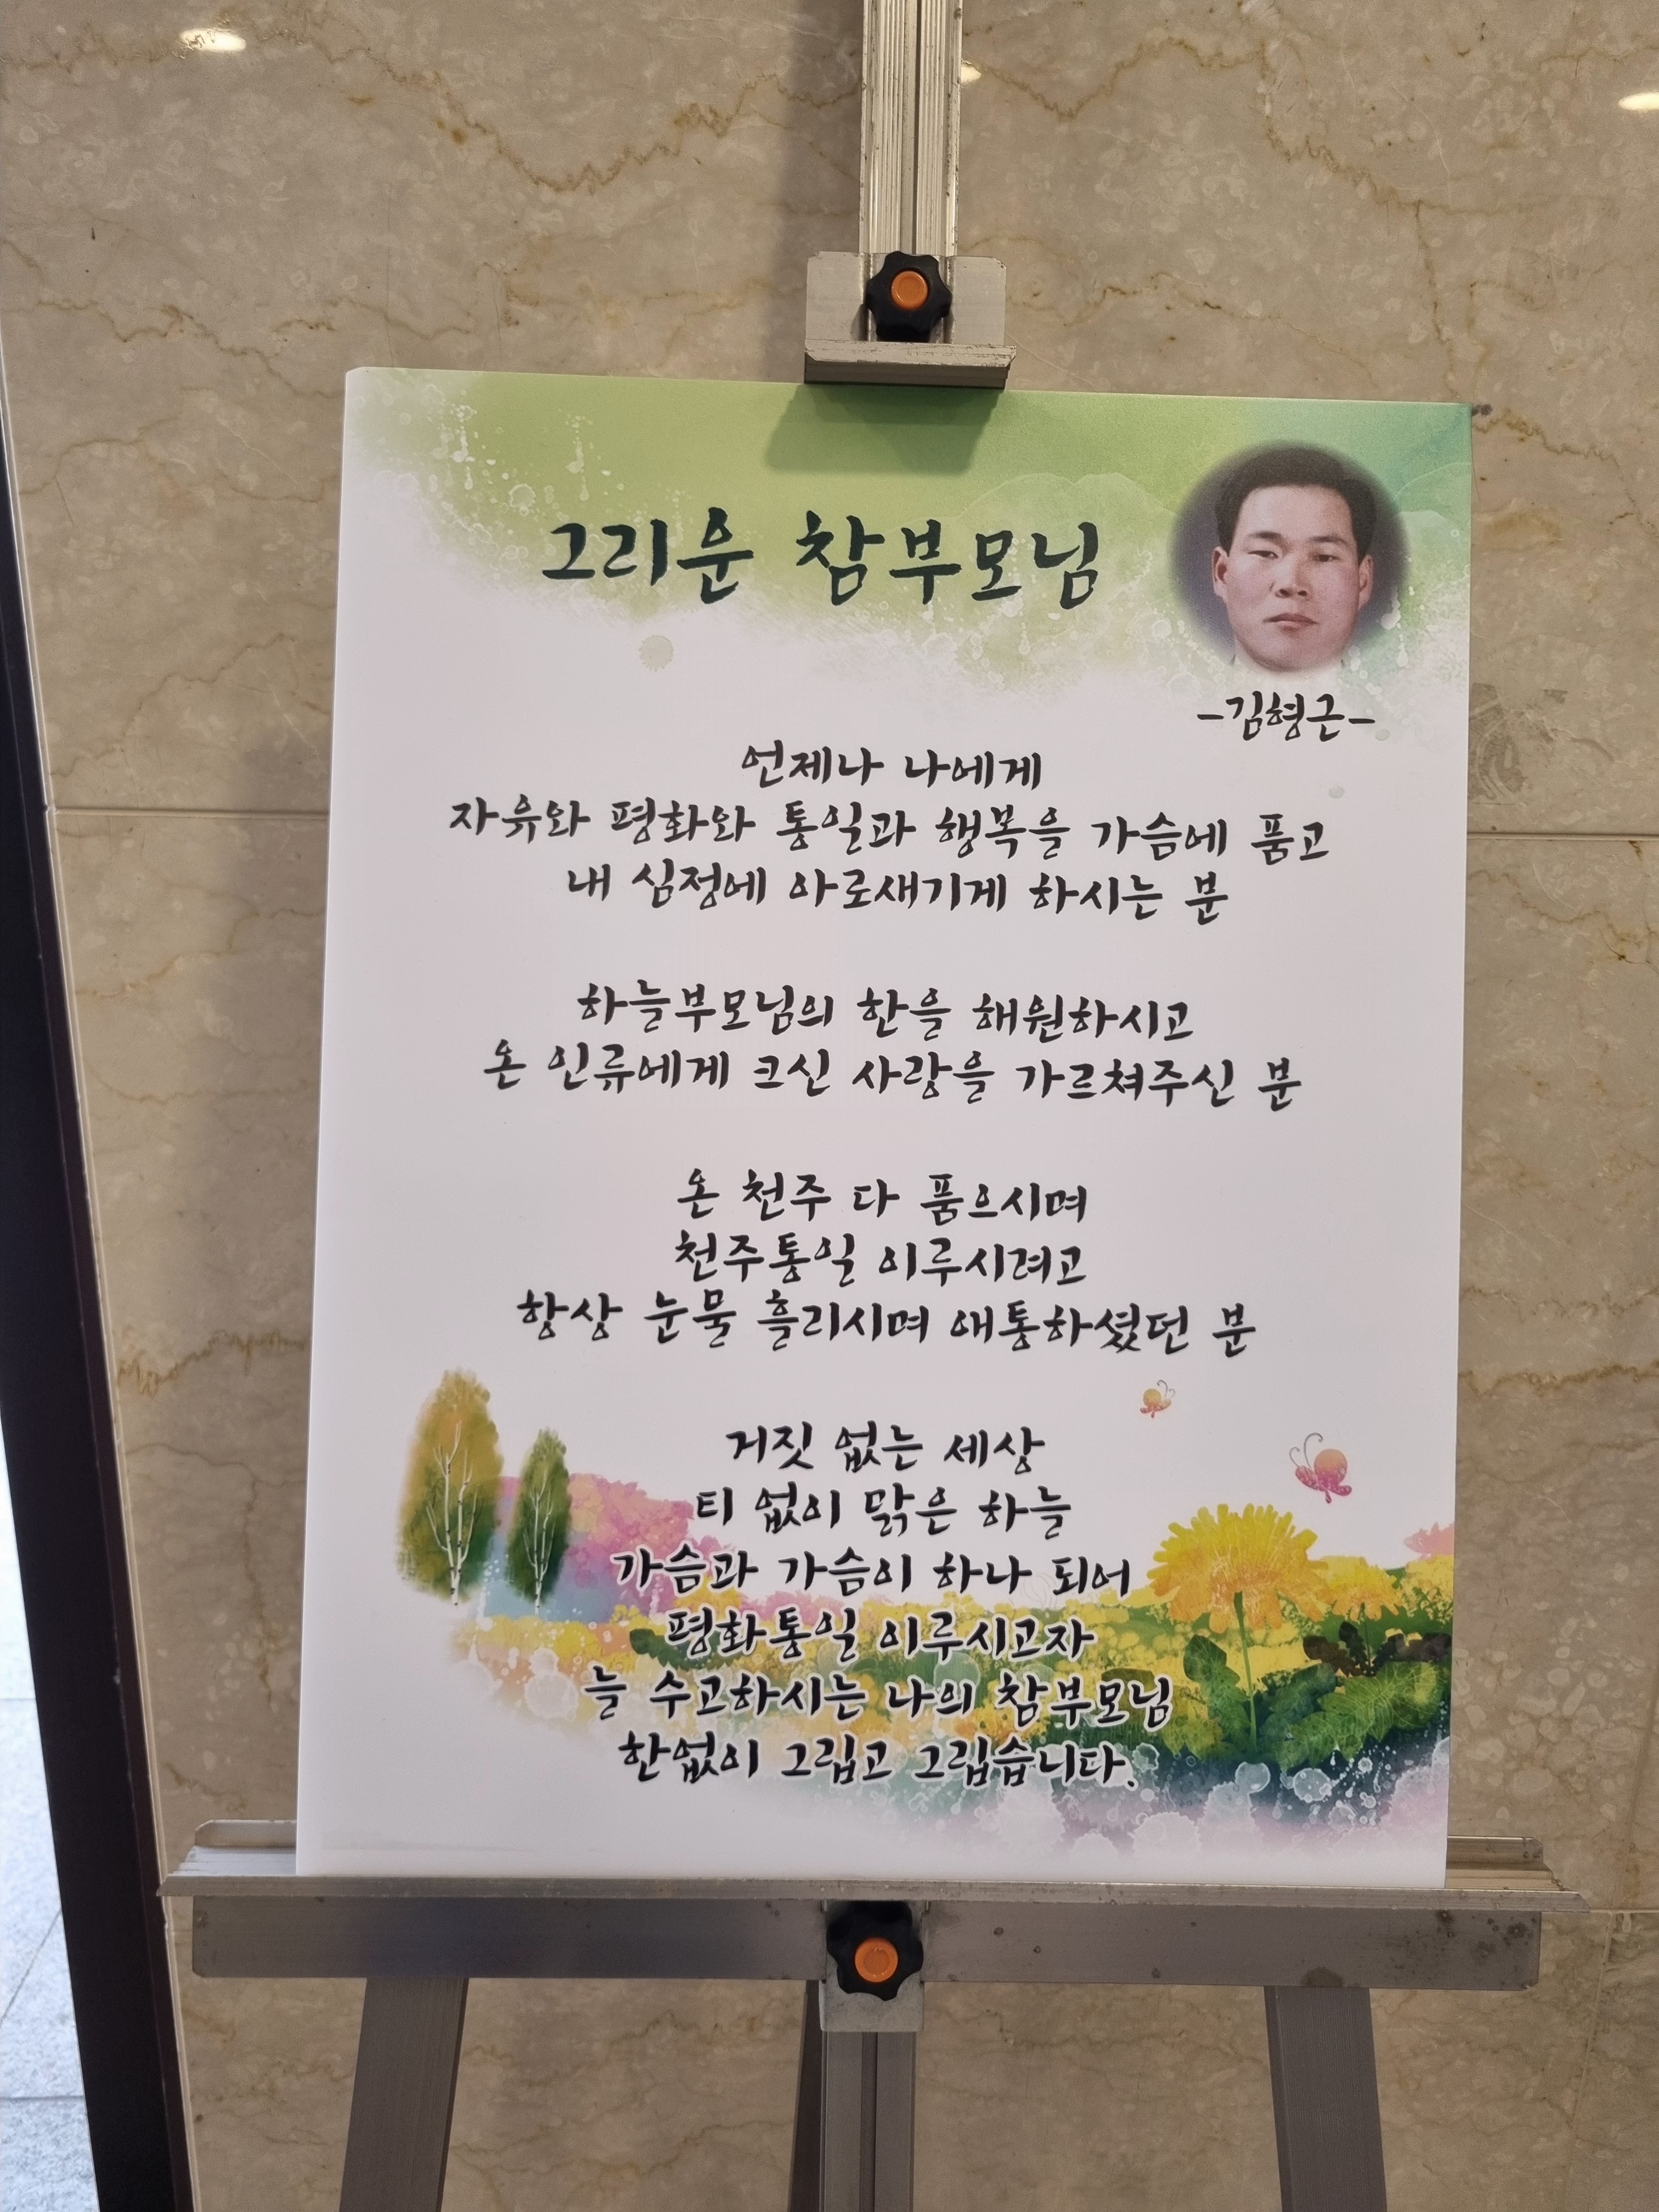 그리운 참부모님
-김형근-
언제나 나에게
자유와 평화와 통일과 행복을 가슴에 품고
내 심정에 아로새기게 하시는 분
하늘부모님의 한을 해원하시고
온 인류에게 크신 사랑을 가르쳐주신 분
온 천주 다 품으시며
천주통일 이루시려고
항상 눈물 흘리시며 애통하셨던 분
거짓 없는 세상
티 없이 맑은 하늘
가슴과 가슴이 하나 되어
평화통일 이루시고자
늘 수고하시는 나의 참부모님
한없이 그립고 그립습니다.